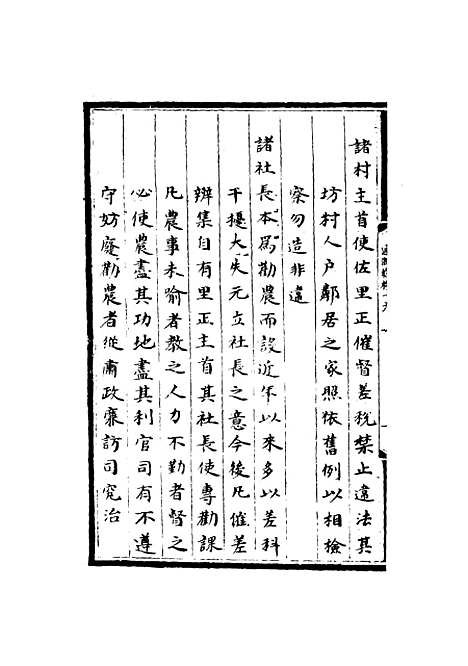 諸村主首使佐里正催督差稅禁止違法其
坊村人户鄰居之家照依舊例以相檢
察勿造非違
諸社長本爲勸農而設近年以來多以差科
干擾大失元立社長之意今後凡催差
辦集自有里正主首其社長使專勸課
凡農事未喻者教之人力不勤者督之
必使農盡其功地盡其利官司有不遵
守妨廢勸農者從肅政廉訪司究治